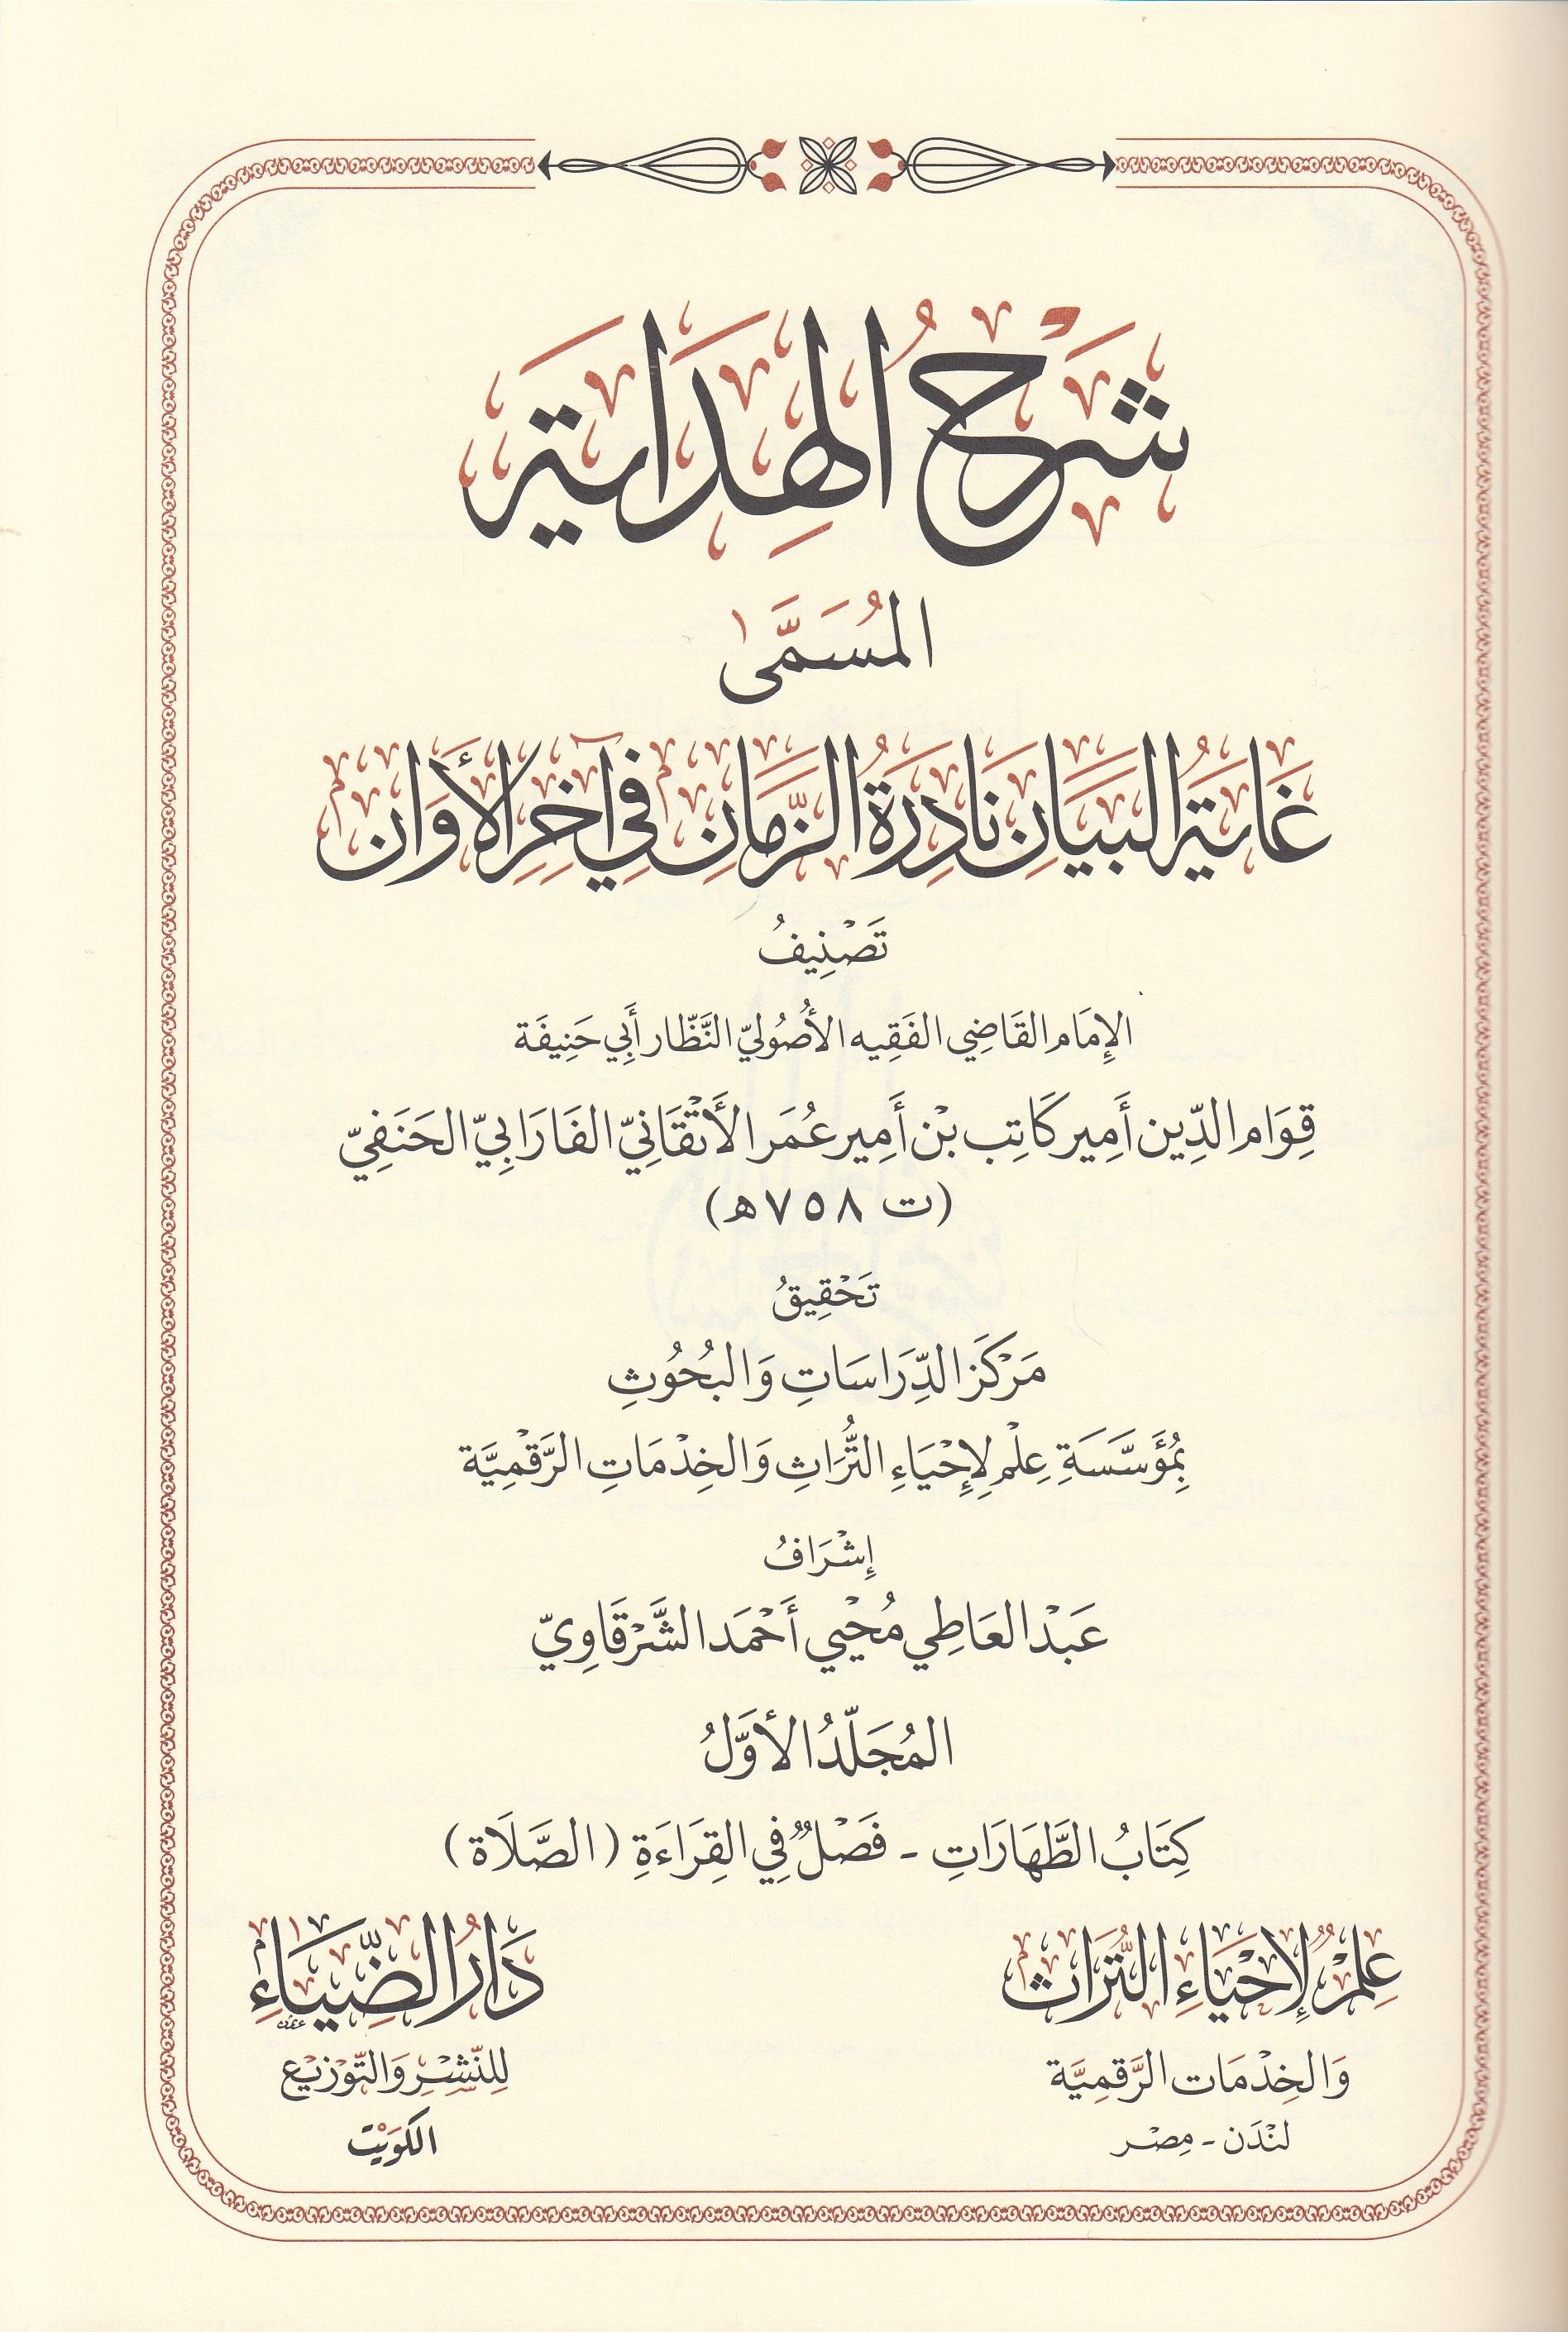 شَرْحُ الهِدَايَة
المُسَمَّى
غَايَةُ البَيَانِ نَادِرَةُ الزَّمَانِ فِي آخِرِ الأَوَان
تَصْنِيفُ
الإِمَام القَاضِي الفَقِيه الأُصُوليّ النَّظّار أَبِي حَنِيفَة
قِوَام الدِّين أَمِير كَاتِب بْن أَمِير عُمَر الأَتْقَانِيّ الفَارَابِيّ الحَنَفِيّ
(ت ٧٥٨ هـ)
تَحْقِيقُ
مَرْكَز الدِّرَاسَاتِ وَالبُحُوثِ
بِمُؤَسَّسَةِ عِلْم لِإِحْيَاءِ التُّرَاثِ وَالخِدْمَاتِ الرَّقْمِيَّة
إِشْرَافُ
عَبْد العَاطِي مُحْيِي أَحْمَد الشَّرْقَاوِيّ
المُجَلّدُ الأوَّلُ
كِتَابُ الطَّهَارَاتِ - فَصْلٌ فِي القِرَاءَةِ (الصَّلَاة)
عِلْمٌ لِإحْيَاءِ التُّرَاث
وَالخِدْمَات الرَّقمِيَّة
لَنْدَن - مِصْر
دَارُ الضِّيَاءِ
لِلنّشْرِ وَالتّوْزيْع
الكوَيْت